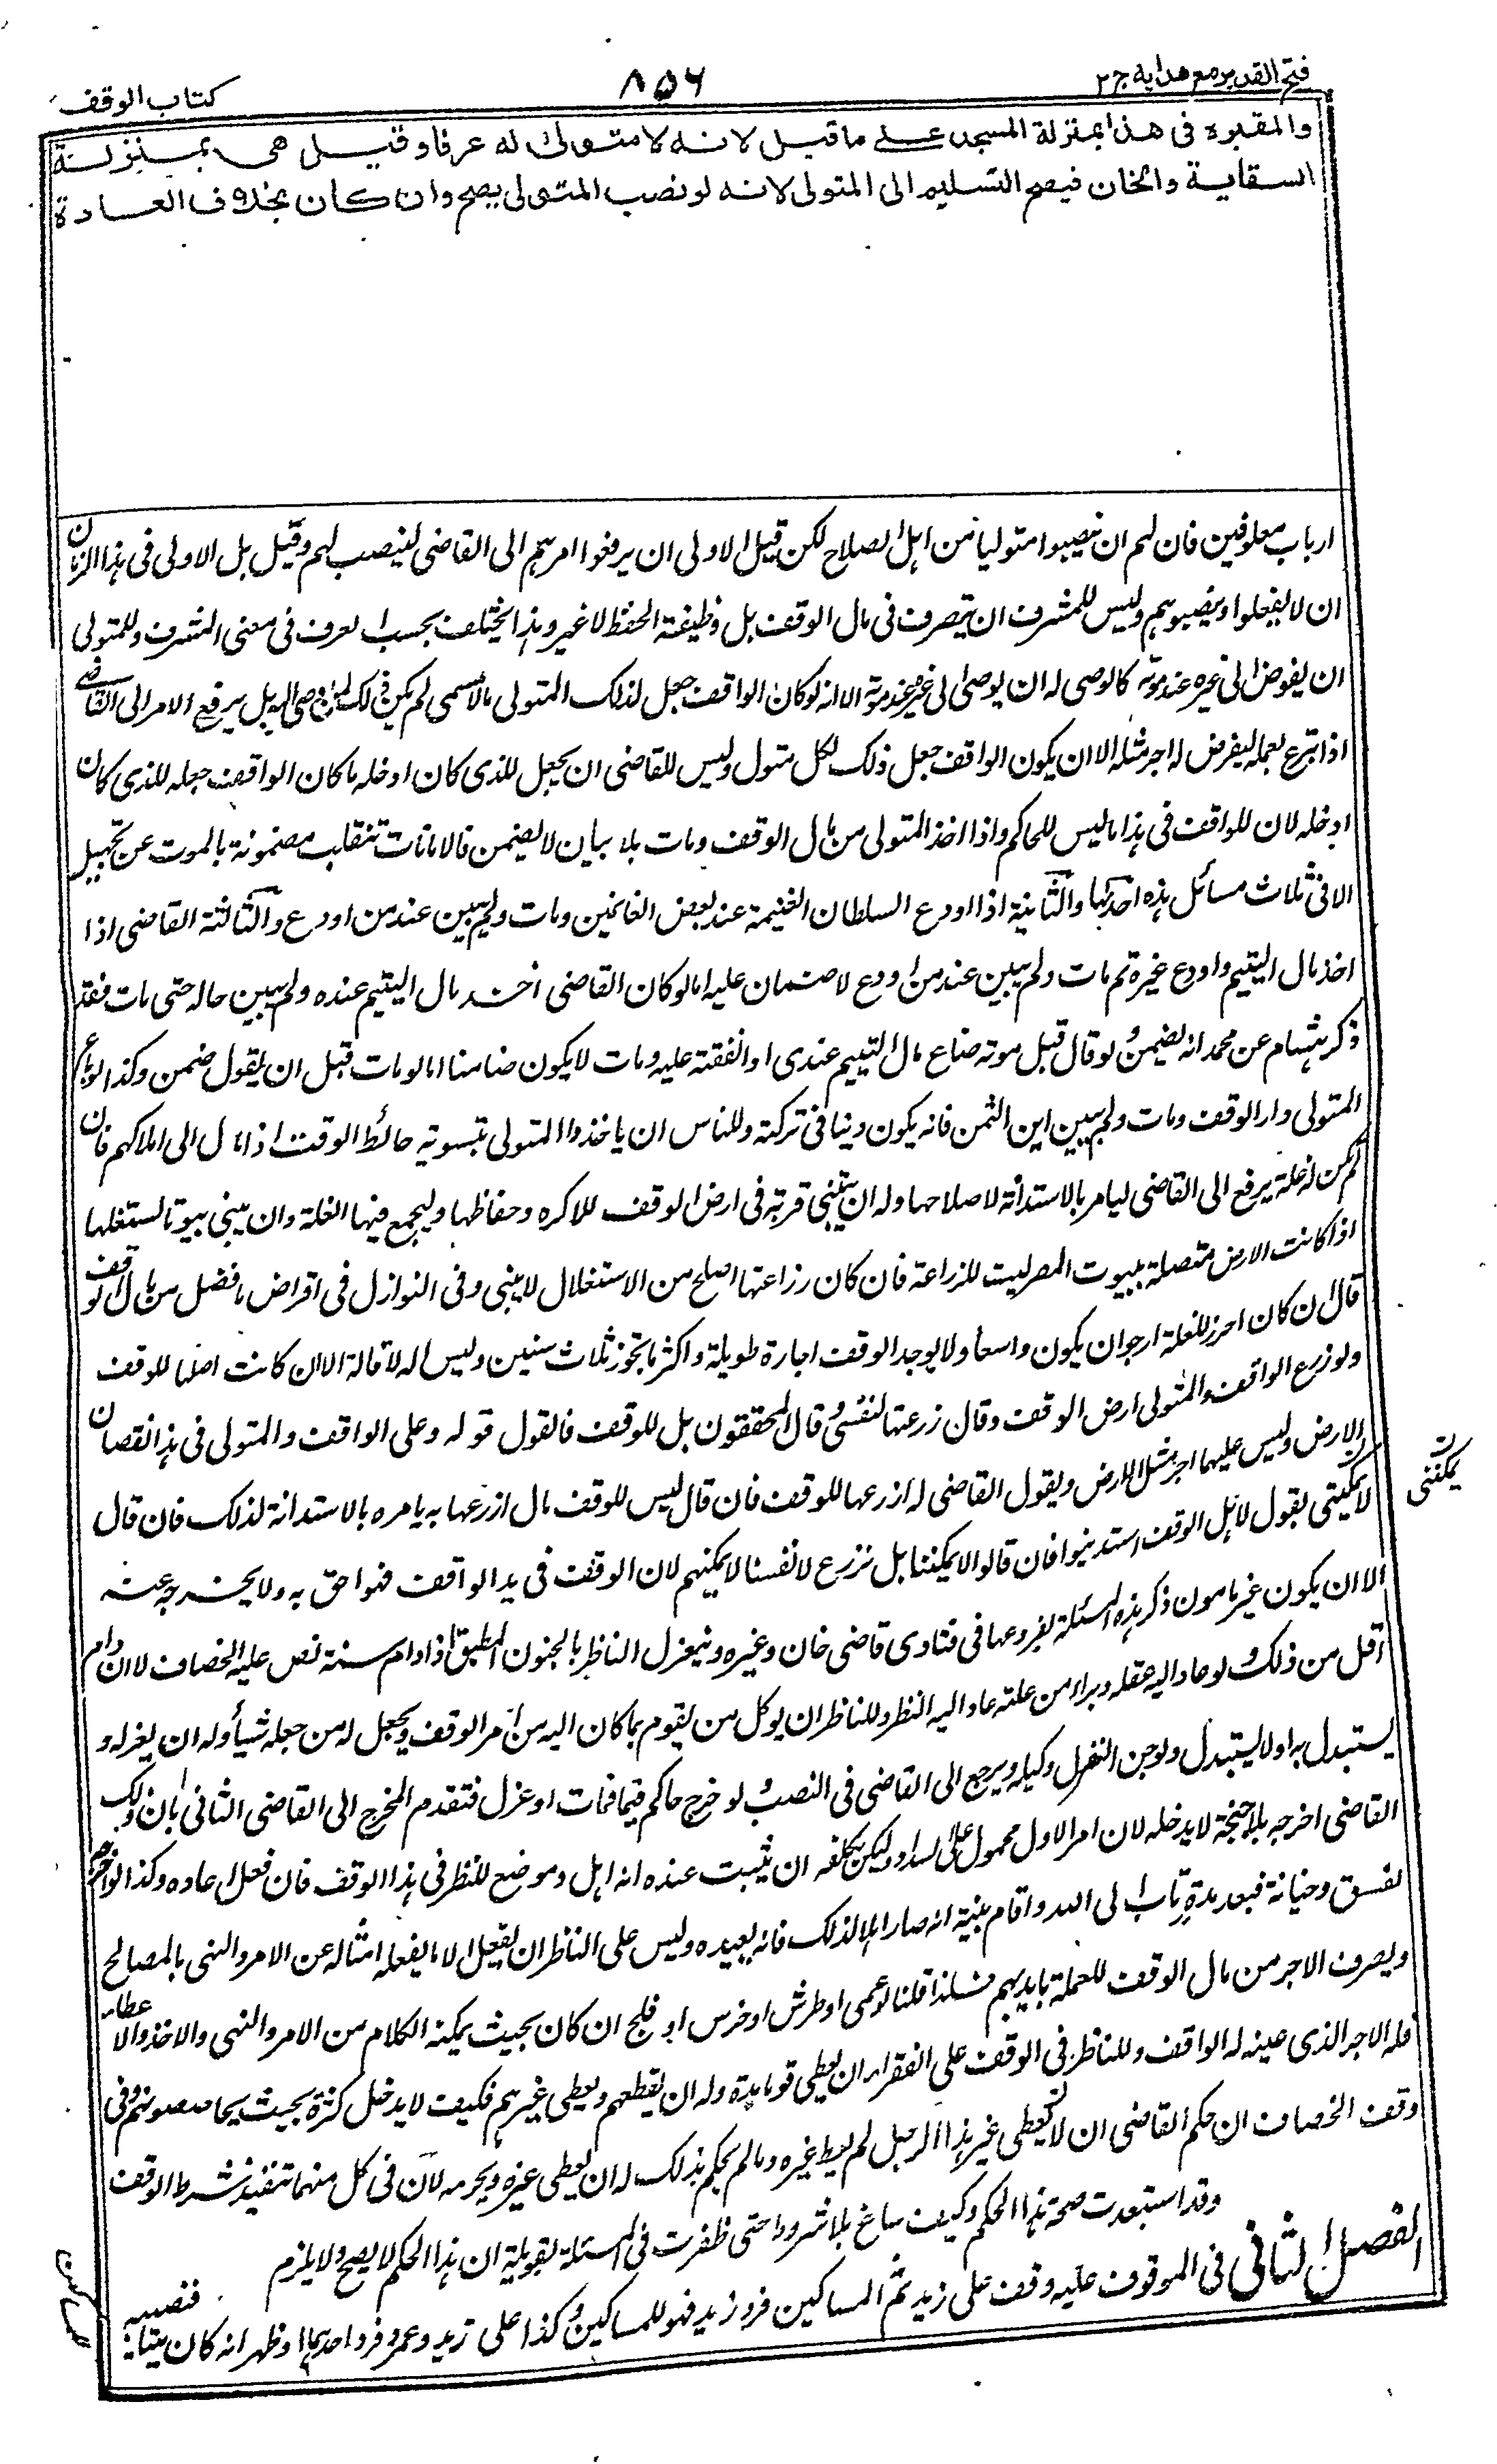 فتح القدير مع هدايه ج ٢
٨٥٦
كتاب الوقف
والمقبرة فى هذا بمنزلة المسجد على ما قيل لانه لا متولى له عرفا وقيل هى بمنزلة
السقاية والخان فيصح التسليم الى المتولى لانه لو نصب المتولى يصح وان كان بخلاف العادة
ارباب معلوفين فان لهم ان ينصبوا متوليا من اهل الصلاح لكن قيل الاولى ان يرفعوا امرهم الى القاضى لينصب لهم وقيل بل الاولى فى هذا الزمان
ان لا يفعلوا وينصبوهم وليس للمشرف ان يتصرف فى مال الوقف بل وظيفته الحفظ لا غير وهذا يختلف بحسب العرف فى معنى المشرف وللمتولى
ان يفوض الى غيره عند موته كالوصى له ان يوصى الى غيره عند موته الا انه لو كان الواقف جعل لذلك المتولى مالا مسمى لم يكن ذلك لمن اوصى اليه بل يرفع الامر الى القاضى
اذا تبرع بعمله ليفرض له اجر مثله الا ان يكون الواقف جعل ذلك لكل متول وليس للقاضى ان يجعل للذى كان ادخله ما كان الواقف جعله للذى كان
ادخله لان للواقف فى هذا ما ليس للحاكم واذا اخذ المتولى من مال الوقف ومات بلا بيان لا يضمن فالامانات تنقلب مضمونة بالموت عن تجهيل
الا فى ثلاث مسائل هذه احداها والثانية اذا اودع السلطان الغنيمة عند بعض الغانمين ومات ولم يبين عند من اودع والثالثة القاضى اذا
اخذ مال اليتيم واودع غيره ثم مات ولم يبين عند من اودع لا ضمان عليه اما لو كان القاضى اخذ مال اليتيم عنده ولم يبين حاله حتى مات فقد
ذكر هشام عن محمد انه يضمن ولو قال قبل موته ضاع مال اليتيم عندى او انفقته عليه ومات لا يكون ضامنا اما لو مات قبل ان يقول ضمن وكذا لو باع
المتولى دار الوقف ومات ولم يبين اين الثمن فانه يكون دينا فى تركته وللناس ان ياخذوا المتولى بتسوية حائط الوقف اذا مال الى املاكهم فان
لم يكن له غلة يرفع الى القاضى ليامر بالاستدانة لاصلاحها وله ان يبتنى قرية فى ارض الوقف للاكره وحفاظها وليجمع فيها الغلة وان يبنى بيوتا يستغلها
اذا كانت الارض متصلة ببيوت المصر ليست للزراعة فان كان زراعتها اصلح من الاستغلال لا يبنى وفى النوازل فى اقراض ما فضل من مال الوقف
قال ان كان احرز للغلة ارجو ان يكون واسعا ولا يوجد الوقف اجارة طويلة واكثر ما تجوز ثلاث سنين وليس له الاقالة الا ان كانت اصلح للوقف
ولو زرع الواقف والمتولى ارض الوقف وقال زرعتها لنفسى وقال المحققون بل للوقف فالقول قوله وعلى الواقف والمتولى فى هذا نقصان
الارض وليس عليهما اجر مثل الارض ويقول القاضى له ازرعها للوقف فان قال ليس للوقف مال ازرعها به يامره بالاستدانة لذلك فان قال
لا يمكننى يقول لاهل الوقف استدينوا فان قالوا لا يمكننا بل نزرع لانفسنا لا يمكنهم لان الوقف فى يد الواقف فهو احق به ولا يخرجه عنه
يمكننى ن
الا ان يكون غير مامون ذكر هذه المسئلة بفروعها فى فتاوى قاضى خان وغيره وينعزل الناظر بالجنون المطبق اذا دام سنة نص عليه الخصاف لا ان دام
اقل من ذلك ولو عاد اليه عقله وبرا من علته عاد اليه النظر وللناظر ان يوكل من يقوم بما كان اليه من امر الوقف ويجعل له من جعله شيأ وله ان يعزله و
يستبدل به او لا يستبدل ولو جن انعزل وكيله ويرجع الى القاضى فى النصب ولو خرج حاكم قيما فمات او عزل فتقدم المخرج الى القاضى الثانى بان ذلك
القاضى اخرجه بلا جنحة لا يدخله لان امر الاول محمول على السداد ولكن يكلفه ان يثبت عنده انه اهل وموضع للنظر فى هذا الوقف فان فعل اعاده وكذا لو اخرجه
لفسق وخيانة فبعد مدة تاب الى الله واقام بينة انه صار اهلا لذلك فانه يعيده وليس على الناظر ان يفعل الا ما يفعله امثاله عن الامر والنهى بالمصالح
ويصرف الاجر من مال الوقف للعملة بايديهم فلذا قلنا لو عمى او طرش او خرس او فلج ان كان بحيث يمكنه الكلام من الامر والنهى والاخذ والاعطاء
فله الاجر الذى عينه له الواقف وللناظر فى الوقف على الفقراء ان يعطى قوما مدة وله ان يقطعهم ويعطى غيرهم فكيف لا يدخل كثرة بحيث وفى
وقف الخصاف ان حكم القاضى ان لا يعطى غير هذا الرجل لم يعط غيره وما لم يحكم بذلك له ان يعطى غيره ويحرمه لان فى كل منهما تنفيذ شرط الوقف
وقد استبعدت صحة هذا الحكم وكيف ساغ بلا شرط حتى ظفرت فى المسئلة بقويلة ان هذا الحكم لا يصح ولا يلزم
الفصل الثانى فى الموقوف عليه وقف على زيد ثم المساكين فرد زيد فهو للمساكين وكذا على زيد وعمرو فرد احدهما او ظهر انه كان ميتا فنصيبه
للمساكين